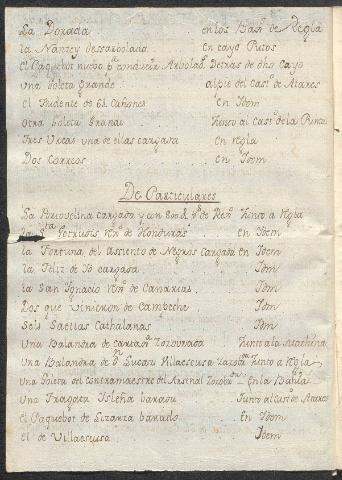 La Dorada en los Baxos. de Regla
la Nancey desarbolada en cayo Putos
el Paquebot nuebo pa. conducir Arbolada. Detras de dho Cayo
una Goleta grande al pie del Casto. de Atares
el Tridente de 64 Cañones en Idem
otra Goleta Grande Junto al Casto. de la Punta
Tres Urcas una de ellas cargada en Regla
Dos Correos en Idem
De Particulares
La Brivelina cargada y con 800 Junto a Regla
la Sta. Gertrudis Rxo. de Honduras en Idem
la Fortuna del Assiento de Negros Cargada en Idem
la Feliz de Id cargada Idem
la San Ignacio Rxo. de Canarias Idem
Dos que vinieron de Campeche Idem
Seis Saetias Cathalanas Idem
Una Balandra de Zozobrada Junto a la Machina
Una Balandra de Dn. Lucas Villaescusa Junto a Regla
Una Goleta del Contramaestre del Arsenal en la Bahia
Una Fragata Isleña barada Junto al Casto. de Atares
el Paquebot de Lizarza barado en Idem
el de Villaescusa Idem